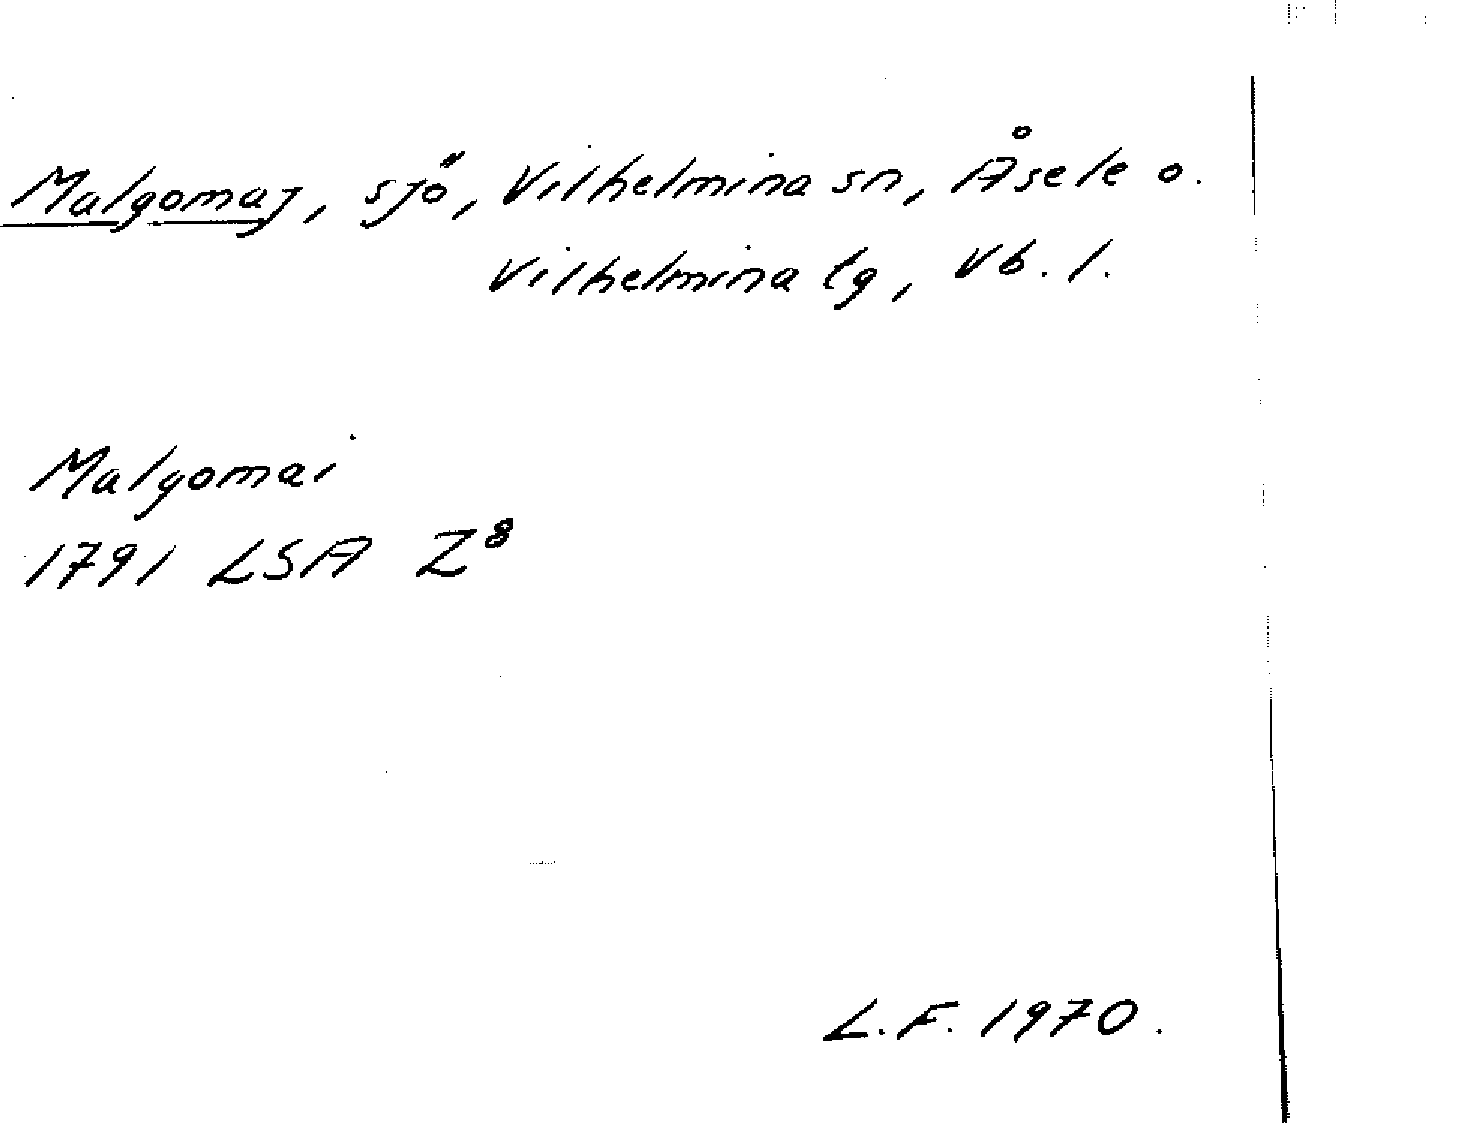 Malgomaj, sjö, Vilhelmina sn, Åsele o.
Vilhelmina lg, Vb. l.
Malgomai
1791 LSA Z⁸
L.F. 1970.